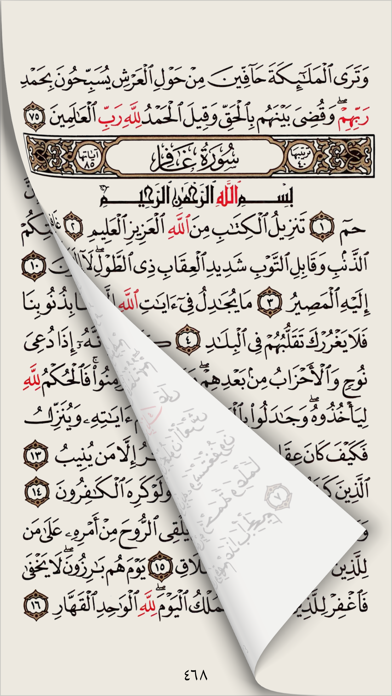 وَتَرَى ٱلْمَلَٰٓئِكَةَ حَآفِّينَ مِنْ حَوْلِ ٱلْعَرْشِ يُسَبِّحُونَ بِحَمْدِ
رَبِّهِمْ ۖ وَقُضِىَ بَيْنَهُم بِٱلْحَقِّ وَقِيلَ ٱلْحَمْدُ لِلَّهِ رَبِّ ٱلْعَٰلَمِينَ ٧٥
ترتيبها ٤٠ سُورَةُ غَافِرٍ آياتها ٨٥
بِسْمِ ٱللَّهِ ٱلرَّحْمَٰنِ ٱلرَّحِيمِ
حمٓ ١ تَنزِيلُ ٱلْكِتَٰبِ مِنَ ٱللَّهِ ٱلْعَزِيزِ ٱلْعَلِيمِ ٢
ٱلذَّنۢبِ وَقَابِلِ ٱلتَّوْبِ شَدِيدِ ٱلْعِقَابِ ذِى ٱلطَّوْلِ ۖ لَآ ١٠
إِلَيْهِ ٱلْمَصِيرُ ٣ مَا يُجَٰدِلُ فِىٓ ءَايَٰتِ ٱللَّهِ بِذُنُوبِنَا
فَلَا يَغْرُرْكَ تَقَلُّبُهُمْ فِى ٱلْبِلَٰدِ ٤ إِذَا دُعِىَ
نُوحٍ وَٱلْأَحْزَابُ مِنۢ بَعْدِهِمْ ۖ فَٱلْحُكْمُ لِلَّهِ
لِيَأْخُذُوهُ ۖ وَجَٰدَلُوا۟ ءَايَٰتِهِۦ وَيُنَزِّلُ
فَكَيْفَ كَانَ إِلَّا مَن يُنِيبُ ١٣
ٱلَّذِينَ وَلَوْ كَرِهَ ٱلْكَٰفِرُونَ ١٤
يُلْقِى ٱلرُّوحَ مِنْ أَمْرِهِۦ عَلَىٰ مَن
لِلَّذِينَ ١٥ يَوْمَ هُم بَٰرِزُونَ ۖ لَا يَخْفَىٰ
فَٱغْفِرْ لِلَّذِينَ ٱلْمُلْكُ ٱلْيَوْمَ ۖ لِلَّهِ ٱلْوَٰحِدِ ٱلْقَهَّارِ ١٦
٤٦٨